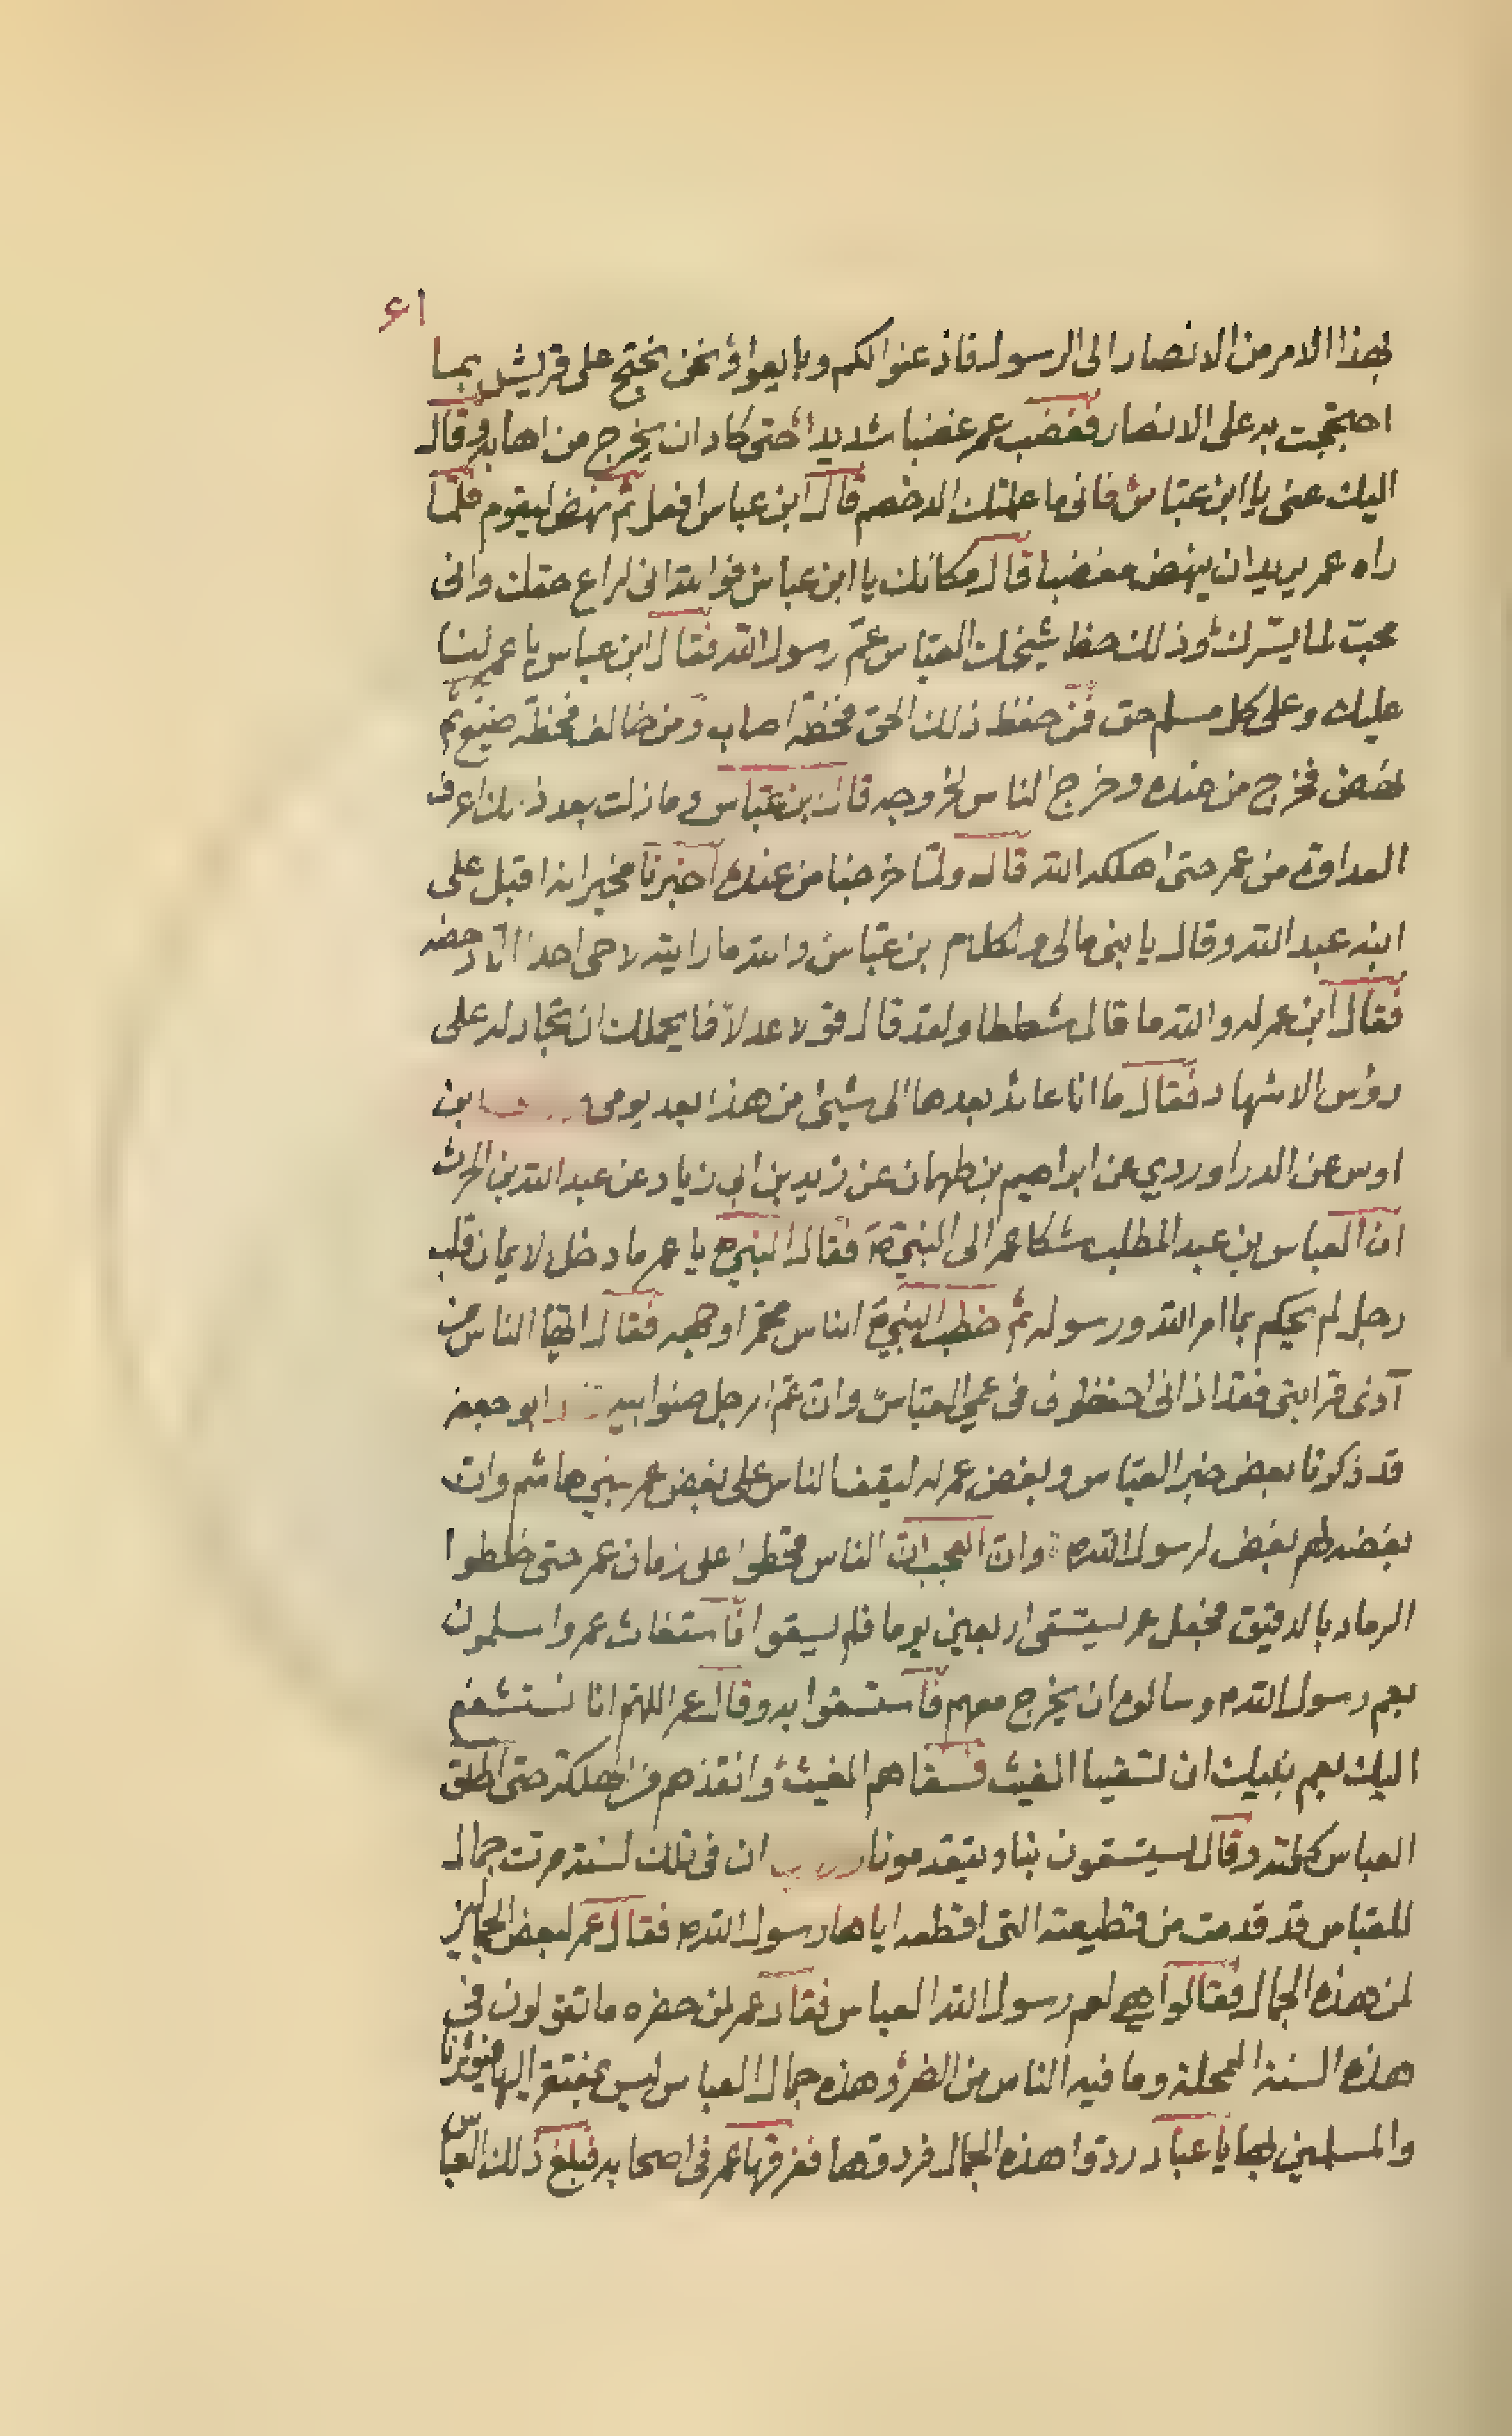 ا۶
بهذا الامر من الانصار الى الرسول فاذعنوا لكم وبايعوا ونحن نحتج على قريش بما
احتججت به على الانصار فغضب عمر غضبا شديدا حتى كاد ان يخرج من اهابه وقال
اليك عنى يا ابن عباس فانى ما علمتك الد خصم قال ابن عباس افعل ثم نهض ليقوم فلما
راه عمر يريد ان ينهض مغضبا قال مكانك يا ابن عباس فوالله انى لراع حقك وانى
محبّ لما يسّرك وذلك حفظ شيخك العباس عمّ رسول الله فقال ابن عباس يا عمر لنا
عليك وعلى كل مسلم حق فمن حفظ ذلك الحق فحظّه اصاب ومن خالف فحظه ضيّع ثم
نهض فخرج من عنده وخرج الناس لخروجه قال بن عباس وما زلت بعد ذلك اعرف
العداوة من عمر حتى اهلكه الله قال ولمّا خرجنا من عنده اخبرنا مخبر انه اقبل على
ابنه عبد الله وقال يا بنى مالى ولكلام بن عبّاس والله ما رايته لاحى احدا الّا وخصمه
فقال ابن عمر له والله ما قال شططا ولقد قال قولا عدلا فما يحملك ان تجادله على
رؤس الاشهاد فقال ما انا عائد بعدها الى شيئ من هذا بعد يومى ابن
اوس عن الدراوردي عن ابراهيم بن طهمان عن زيد بن ابى زياد عن عبد الله بن الحرث
ان العباس بن عبد المطلب شكا عمر الى النبىّ فقال النبىّ يا عمر ما دخل لايمان قلب
رجل لم يحكم بما امر الله ورسوله ثم خطب النبىّ الناس محمّرا وجهه فقال ايّها الناس من
آذى قرابتى فقد اذانى احفظونى فى عمي العباس وان عمّ الرجل صنو ابيه ابو جعفر
قد ذكرنا بعض خبر العباس وبغض عمر له ليقف الناس على بغض عمر بني هاشم وان
بغضه لهم بغض لرسول الله وان العجب ان الناس قحطوا على زمان عمر حتى خلطوا
الرماد بالدقيق فجعل عمر يستسقى اربعين يوما فلم يسقوا فاستغاث عمر والمسلمون
بعم رسول الله وسالوه ان يخرج معهم فاستسقوا به وقال عمر اللهم انا نستشفع
اليك بعم نبيك ان تسقينا الغيث فسقاهم الغيث وانقذهم من الهلكة حتى اطلق
العباس كلمته وقال يستسقون بنا ويتقدمونا ان فى تلك لسنة مرت جمال
للعباس قد قدمت من قطيعته التى اقطعه اياها رسول الله فقال عمر لبعض
لمن هذه الجمال فقالوا هي لعم رسول الله العباس فقال عمر لمن حضره ما تقولون فى
هذه السنة المحلة وما فيه الناس من الضر وهذه جمال العباس ليس بمفتقر اليها فيؤثرنا
والمسلمين بها يا عباد ردوا هذه الجمال فردوها ففرقها عمر فى اصحابه فبلغ ذلك العباس